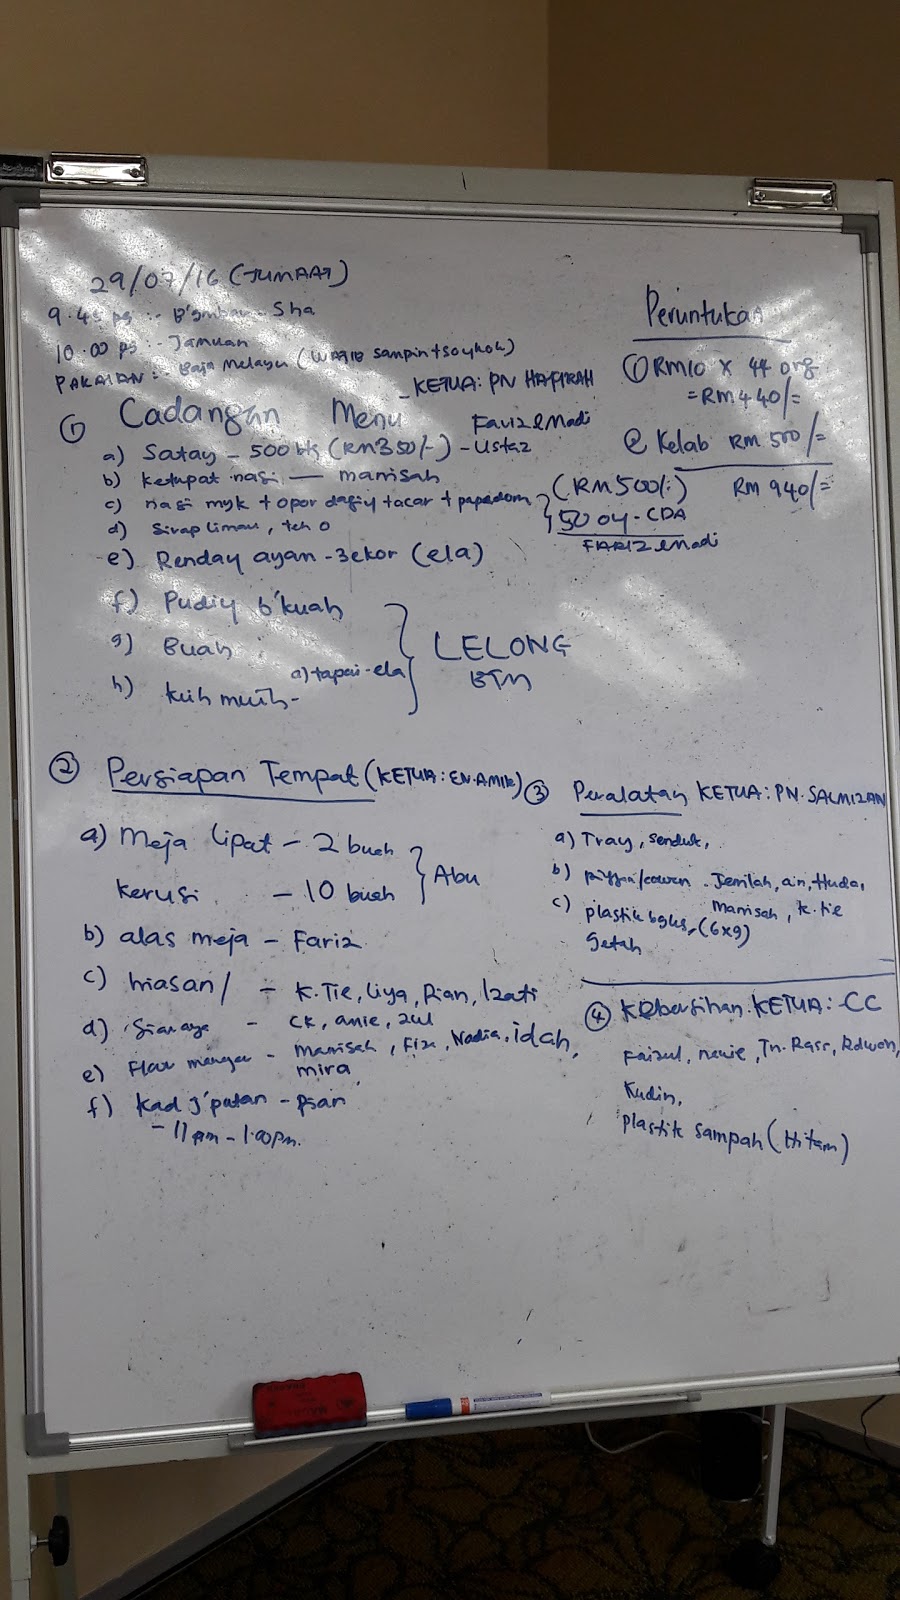 29/07/16 (JUMAAT)
9.45 pg :- B'gambar - Sha
10.00 pg :- Jamuan
PAKAIAN :- Baju Melayu (WAJIB sampin + songkok)
Peruntukan
① RM10 X 44 org
= RM440/=
② Kelab RM 500/=
RM 940/=
① Cadangan Menu
- KETUA: PN HAFIZAH
Fariz & Madi
a) Satay - 500 bks (RM350/-) - Ustaz
b) ketupat nasi - manisah
c) nasi myk + opor daging + acar + papadom
d) Sirap limau, teh O
(RM500/-)
50 org - CDA
FARIZ & Madi
e) Rendang ayam - 3 ekor (ela)
f) Puding b'kuah
g) Buah
h) kuih muih -
a) tapai - ela
LELONG
BTM
② Persiapan Tempat (KETUA: EN. AMIR)
a) Meja lipat - 2 buah
kerusi - 10 buah
Abu
b) alas meja - Fariz
c) hiasan / - K. Tie, Liya, Pian, Izati
d) Siaraya - CK, anie, zul
e) - manisah, Fiza, Nadia, idah,
mira
f) Kad j'putan - psan
- 11 pm - 1.00pm.
③ Peralatan KETUA: PN. SALMIZAN
a) Tray, senduk,
b) pinggan/cawan - Jemilah, ain, Huda,
manisah, k. tie
c) plastik bgks, (6x9)
getah
④ Kebersihan KETUA: CC
Faizul, Tn. Rasr, Ridwan,
Kudin,
plastik sampah (Hitam)